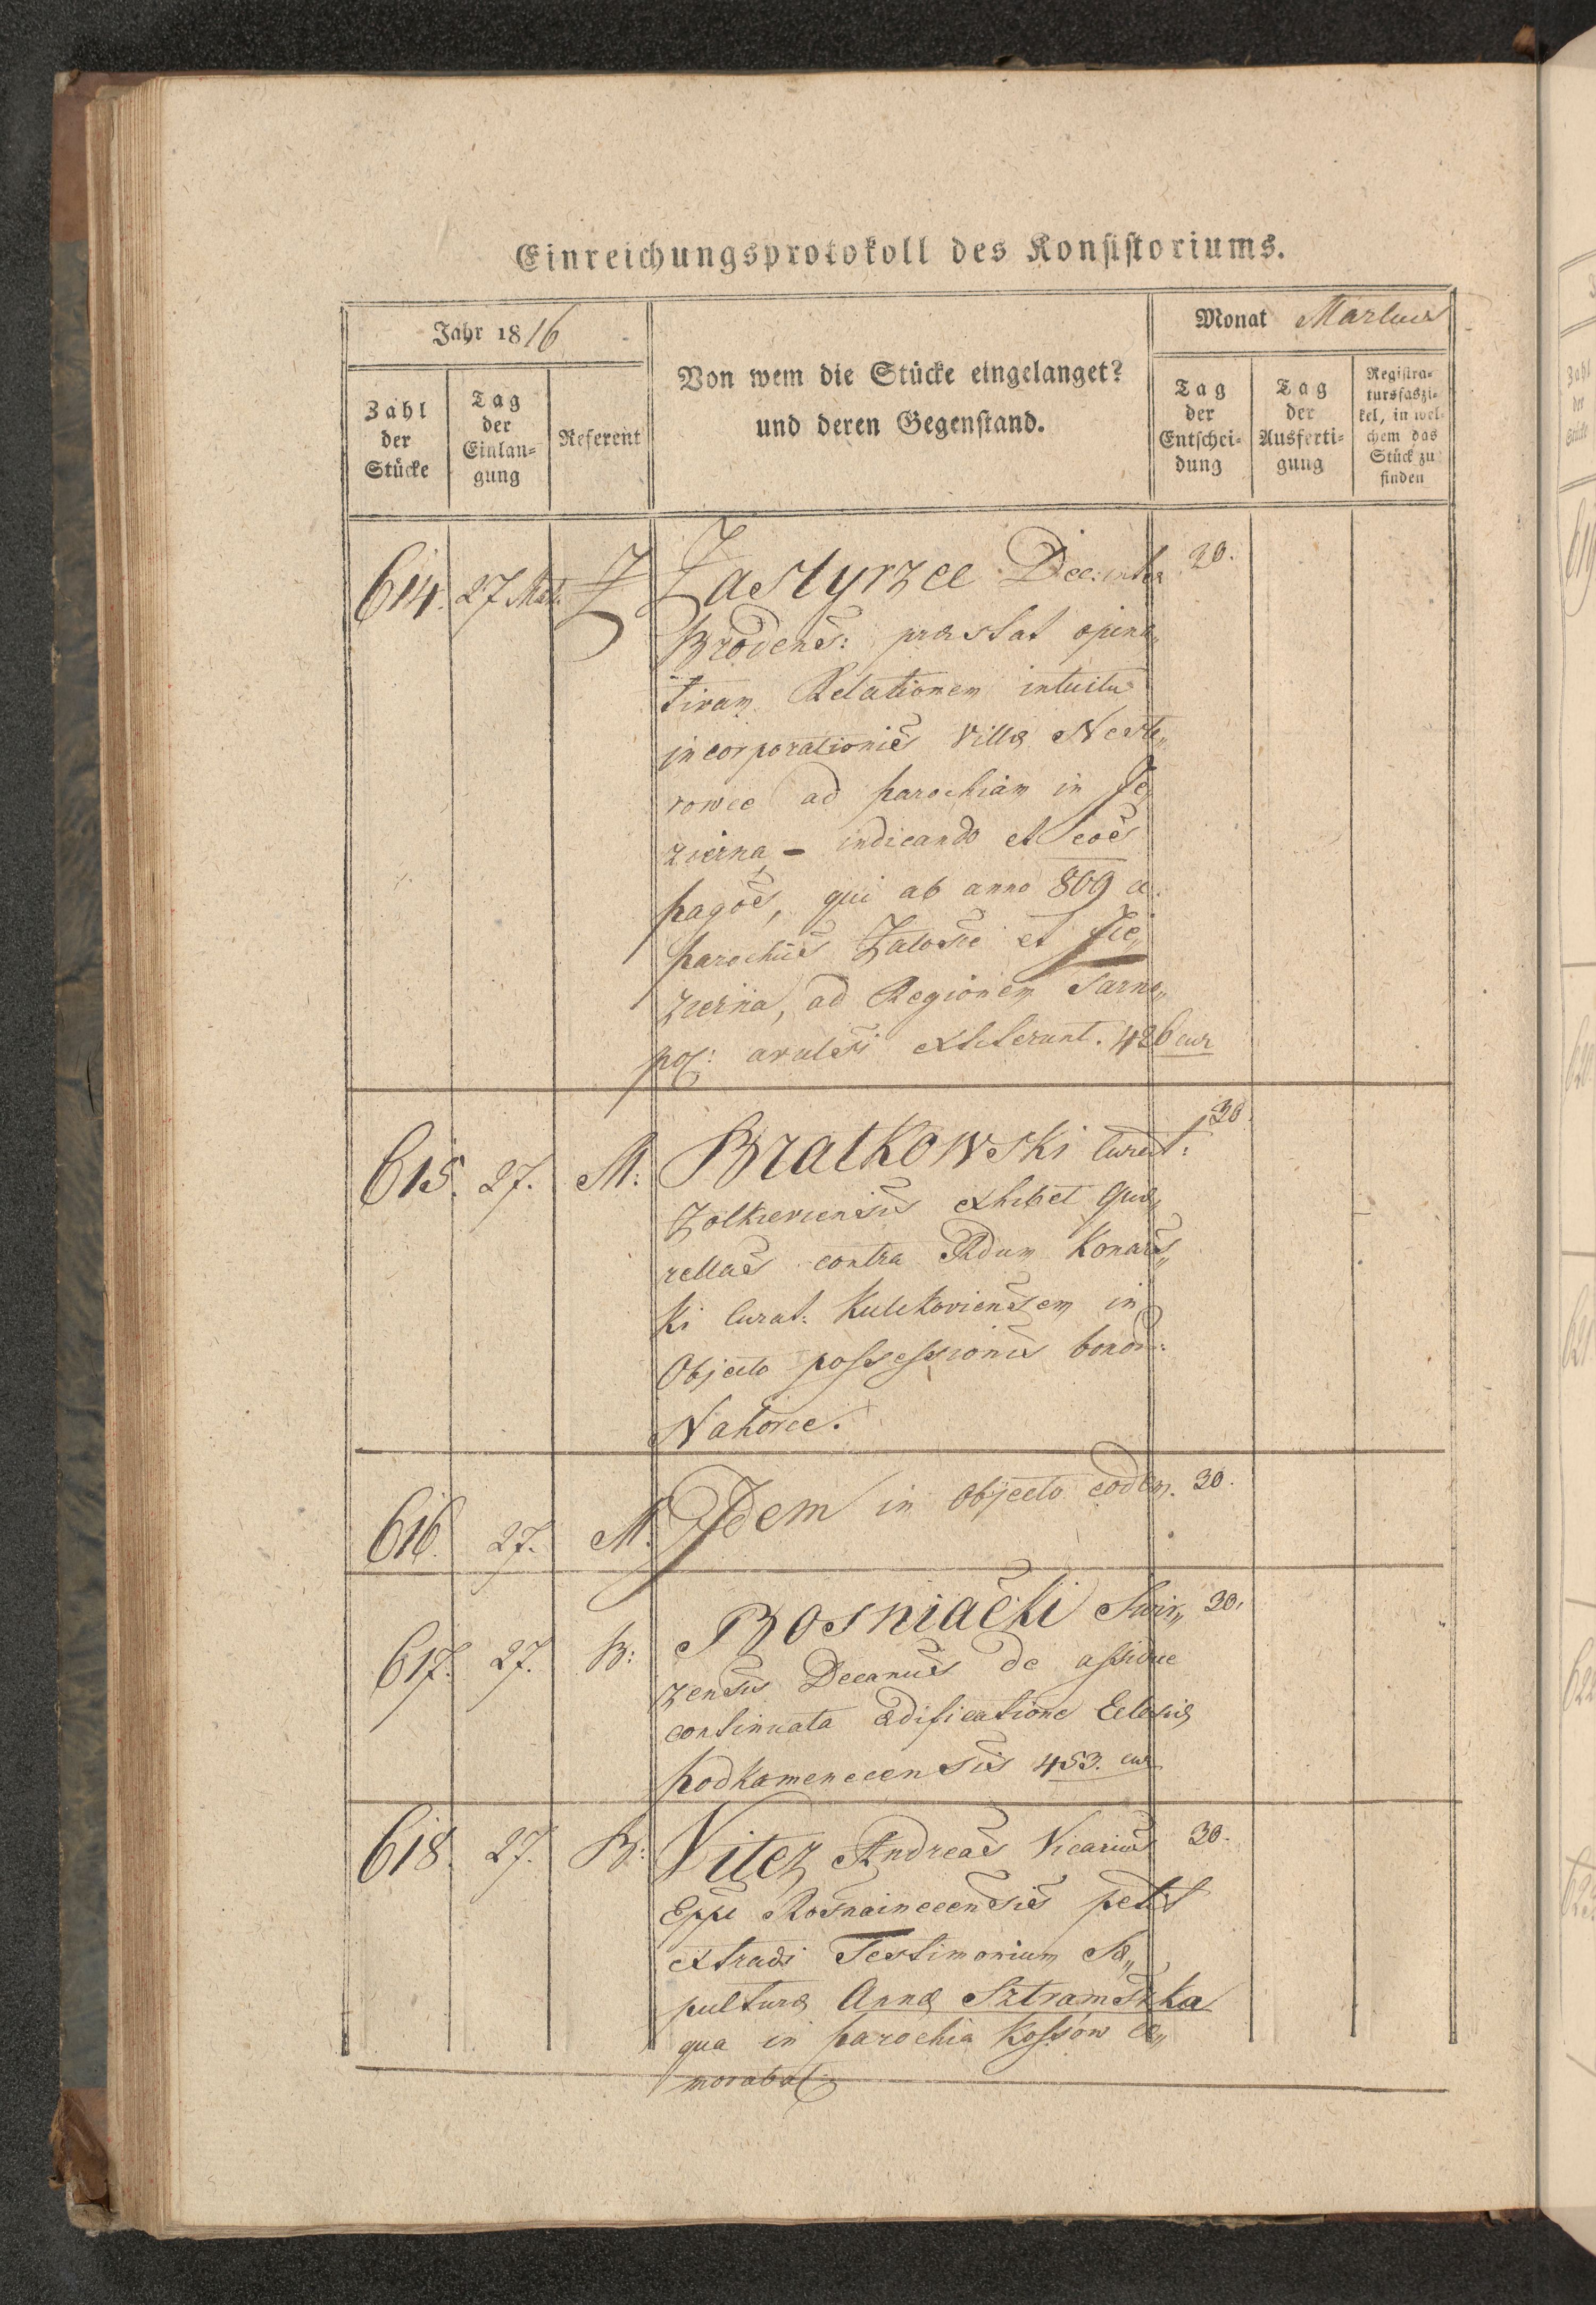 Einreichungsprotokoll des Konsistoriums.
Jahr 1816
Monat Martius
Zahl der Stücke
Tag der Einlan=gung
Referent
Von wem die Stücke eingelanget?
und deren Gegenstand.
Tag der Entschei=dung
Tag der Ausferti=gung
Registra=tursfaszi=kel, in wel=chem das Stück zu finden
614. 27 Mart. Z Zastyrzec Dec: 20.
Brodens: præstat opina„
tivam Relationem intuitu
incorporationis Villæ Neste„
rowce ad parochiam in Je„
zierna – indicando et eos
pagos, qui ab anno 809 a
parochiis Zalosce et Jie„
zierna, ad Regionem Tarno„
pol: avulsi extiterunt. 426 cur
615. 27. M. Bratkowski Curat: 30.
Zolkieviensis exhibet Quæ„
rellas contra Rdum Konars„
ki Curat: Kulikoviensem in
Objecto possessionis bonor:
Nahorce.
616. 27. M. Idem in objecto eodem. 30.
617. 27. B: Bosniacki Swir„ 30.
zensis Decanus de assidue
continuata ædificatione Eclesiæ
Podkamenecensis 453. cur
618. 27. B: Vitez Andreas Vicarius 30.
Eppi Rosnaincensis petit
extradi Testimonium Se„
pulturæ Annæ Sztramszka
qua in parochia Kossow co„
morabat